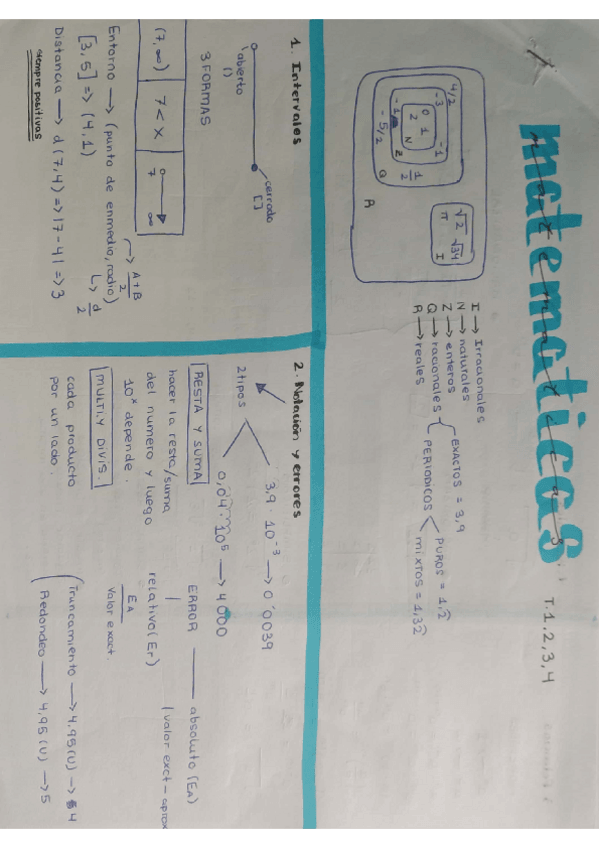 matematicas
T.1,2,3,4
4/2
-3
-1
0 1
2 N
-1
Z
1/2
-5/2
Q
R
√2 √34
π I
I → Irracionales
N → naturales
Z → enteros
Q → racionales
EXACTOS = 3,9
PERIODICOS
PUROS = 1,2̂
MIXTOS = 1,32̂
R → reales
1. Intervalos
abierto
()
cerrado
[]
3 FORMAS
(7, ∞)
7 < X
7 ∞
Entorno → (punto de enmedio, radio)
A+B/2
d/2
[3, 5] => (4, 1)
Distancia → d (7, 4) => |7 - 4| => 3
siempre positivas
2. Notación y errores
2 tipos
3,9 · 10⁻³ → 0,0039
0,04 · 10⁵ → 4.000
RESTA Y SUMA
hacer la resta/suma
del numero y luego
10ˣ depende.
MULTI Y DIVIS.
cada producto
por un lado.
ERROR
absoluto (EA)
|valor exct - aprox
relativo (Er)
EA
valor exact
Truncamiento → 4,95 (U) → 4
Redondeo → 4,95 (U) → 5